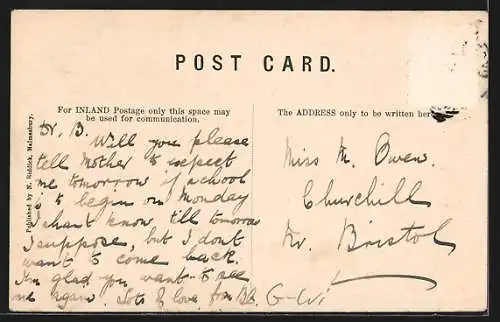 POST CARD.
For INLAND Postage only this space may
be used for communication.
The ADDRESS only to be written here
Published by N. Riddick, Malmesbury.
Dr. B.
Will you please
tell Mother to expect
me tomorrow if school
is to begin on Monday
I shant know till tomorrow
I suppose, but I dont
want to come back.
I'm glad you want to see
me again. Lots of love from
Miss M. Owen.
Churchill
Nr. Bristol